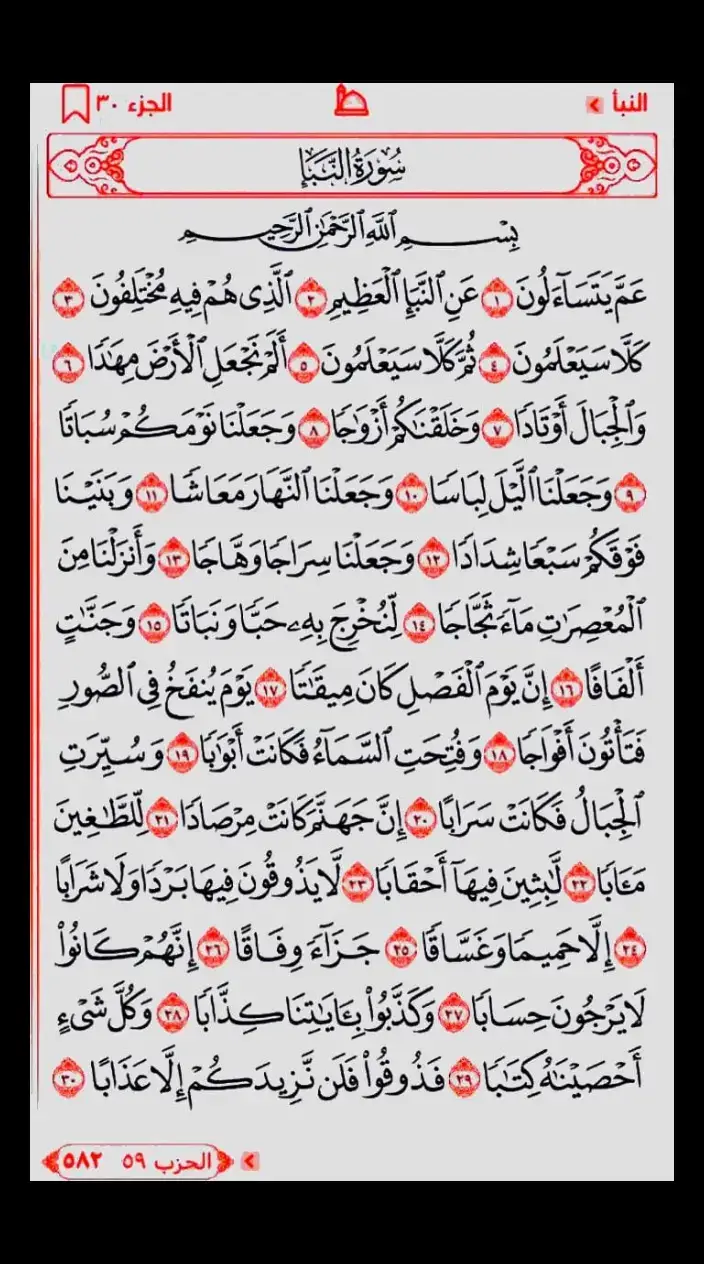 النبأ الجزء ٣٠
سُورَةُ النَّبَإِ
بِسْمِ ٱللَّهِ ٱلرَّحْمَٰنِ ٱلرَّحِيمِ
عَمَّ يَتَسَآءَلُونَ ١ عَنِ ٱلنَّبَإِ ٱلْعَظِيمِ ٢ ٱلَّذِى هُمْ فِيهِ مُخْتَلِفُونَ ٣
كَلَّا سَيَعْلَمُونَ ٤ ثُمَّ كَلَّا سَيَعْلَمُونَ ٥ أَلَمْ نَجْعَلِ ٱلْأَرْضَ مِهَٰدًا ٦
وَٱلْجِبَالَ أَوْتَادًا ٧ وَخَلَقْنَٰكُمْ أَزْوَٰجًا ٨ وَجَعَلْنَا نَوْمَكُمْ سُبَاتًا
٩ وَجَعَلْنَا ٱلَّيْلَ لِبَاسًا ١٠ وَجَعَلْنَا ٱلنَّهَارَ مَعَاشًا ١١ وَبَنَيْنَا
فَوْقَكُمْ سَبْعًا شِدَادًا ١٢ وَجَعَلْنَا سِرَاجًا وَهَّاجًا ١٣ وَأَنزَلْنَا مِنَ
ٱلْمُعْصِرَٰتِ مَآءً ثَجَّاجًا ١٤ لِّنُخْرِجَ بِهِۦ حَبًّا وَنَبَاتًا ١٥ وَجَنَّٰتٍ
أَلْفَافًا ١٦ إِنَّ يَوْمَ ٱلْفَصْلِ كَانَ مِيقَٰتًا ١٧ يَوْمَ يُنفَخُ فِى ٱلصُّورِ
فَتَأْتُونَ أَفْوَاجًا ١٨ وَفُتِحَتِ ٱلسَّمَآءُ فَكَانَتْ أَبْوَٰبًا ١٩ وَسُيِّرَتِ
ٱلْجِبَالُ فَكَانَتْ سَرَابًا ٢٠ إِنَّ جَهَنَّمَ كَانَتْ مِرْصَادًا ٢١ لِّلطَّٰغِينَ
مَـَٔابًا ٢٢ لَّٰبِثِينَ فِيهَآ أَحْقَابًا ٢٣ لَّا يَذُوقُونَ فِيهَا بَرْدًا وَلَا شَرَابًا
٢٤ إِلَّا حَمِيمًا وَغَسَّاقًا ٢٥ جَزَآءً وِفَاقًا ٢٦ إِنَّهُمْ كَانُوا۟
لَا يَرْجُونَ حِسَابًا ٢٧ وَكَذَّبُوا۟ بِـَٔايَٰتِنَا كِذَّابًا ٢٨ وَكُلَّ شَىْءٍ
أَحْصَيْنَٰهُ كِتَٰبًا ٢٩ فَذُوقُوا۟ فَلَن نَّزِيدَكُمْ إِلَّا عَذَابًا ٣٠
الحزب ٥٩ ٥٨٢